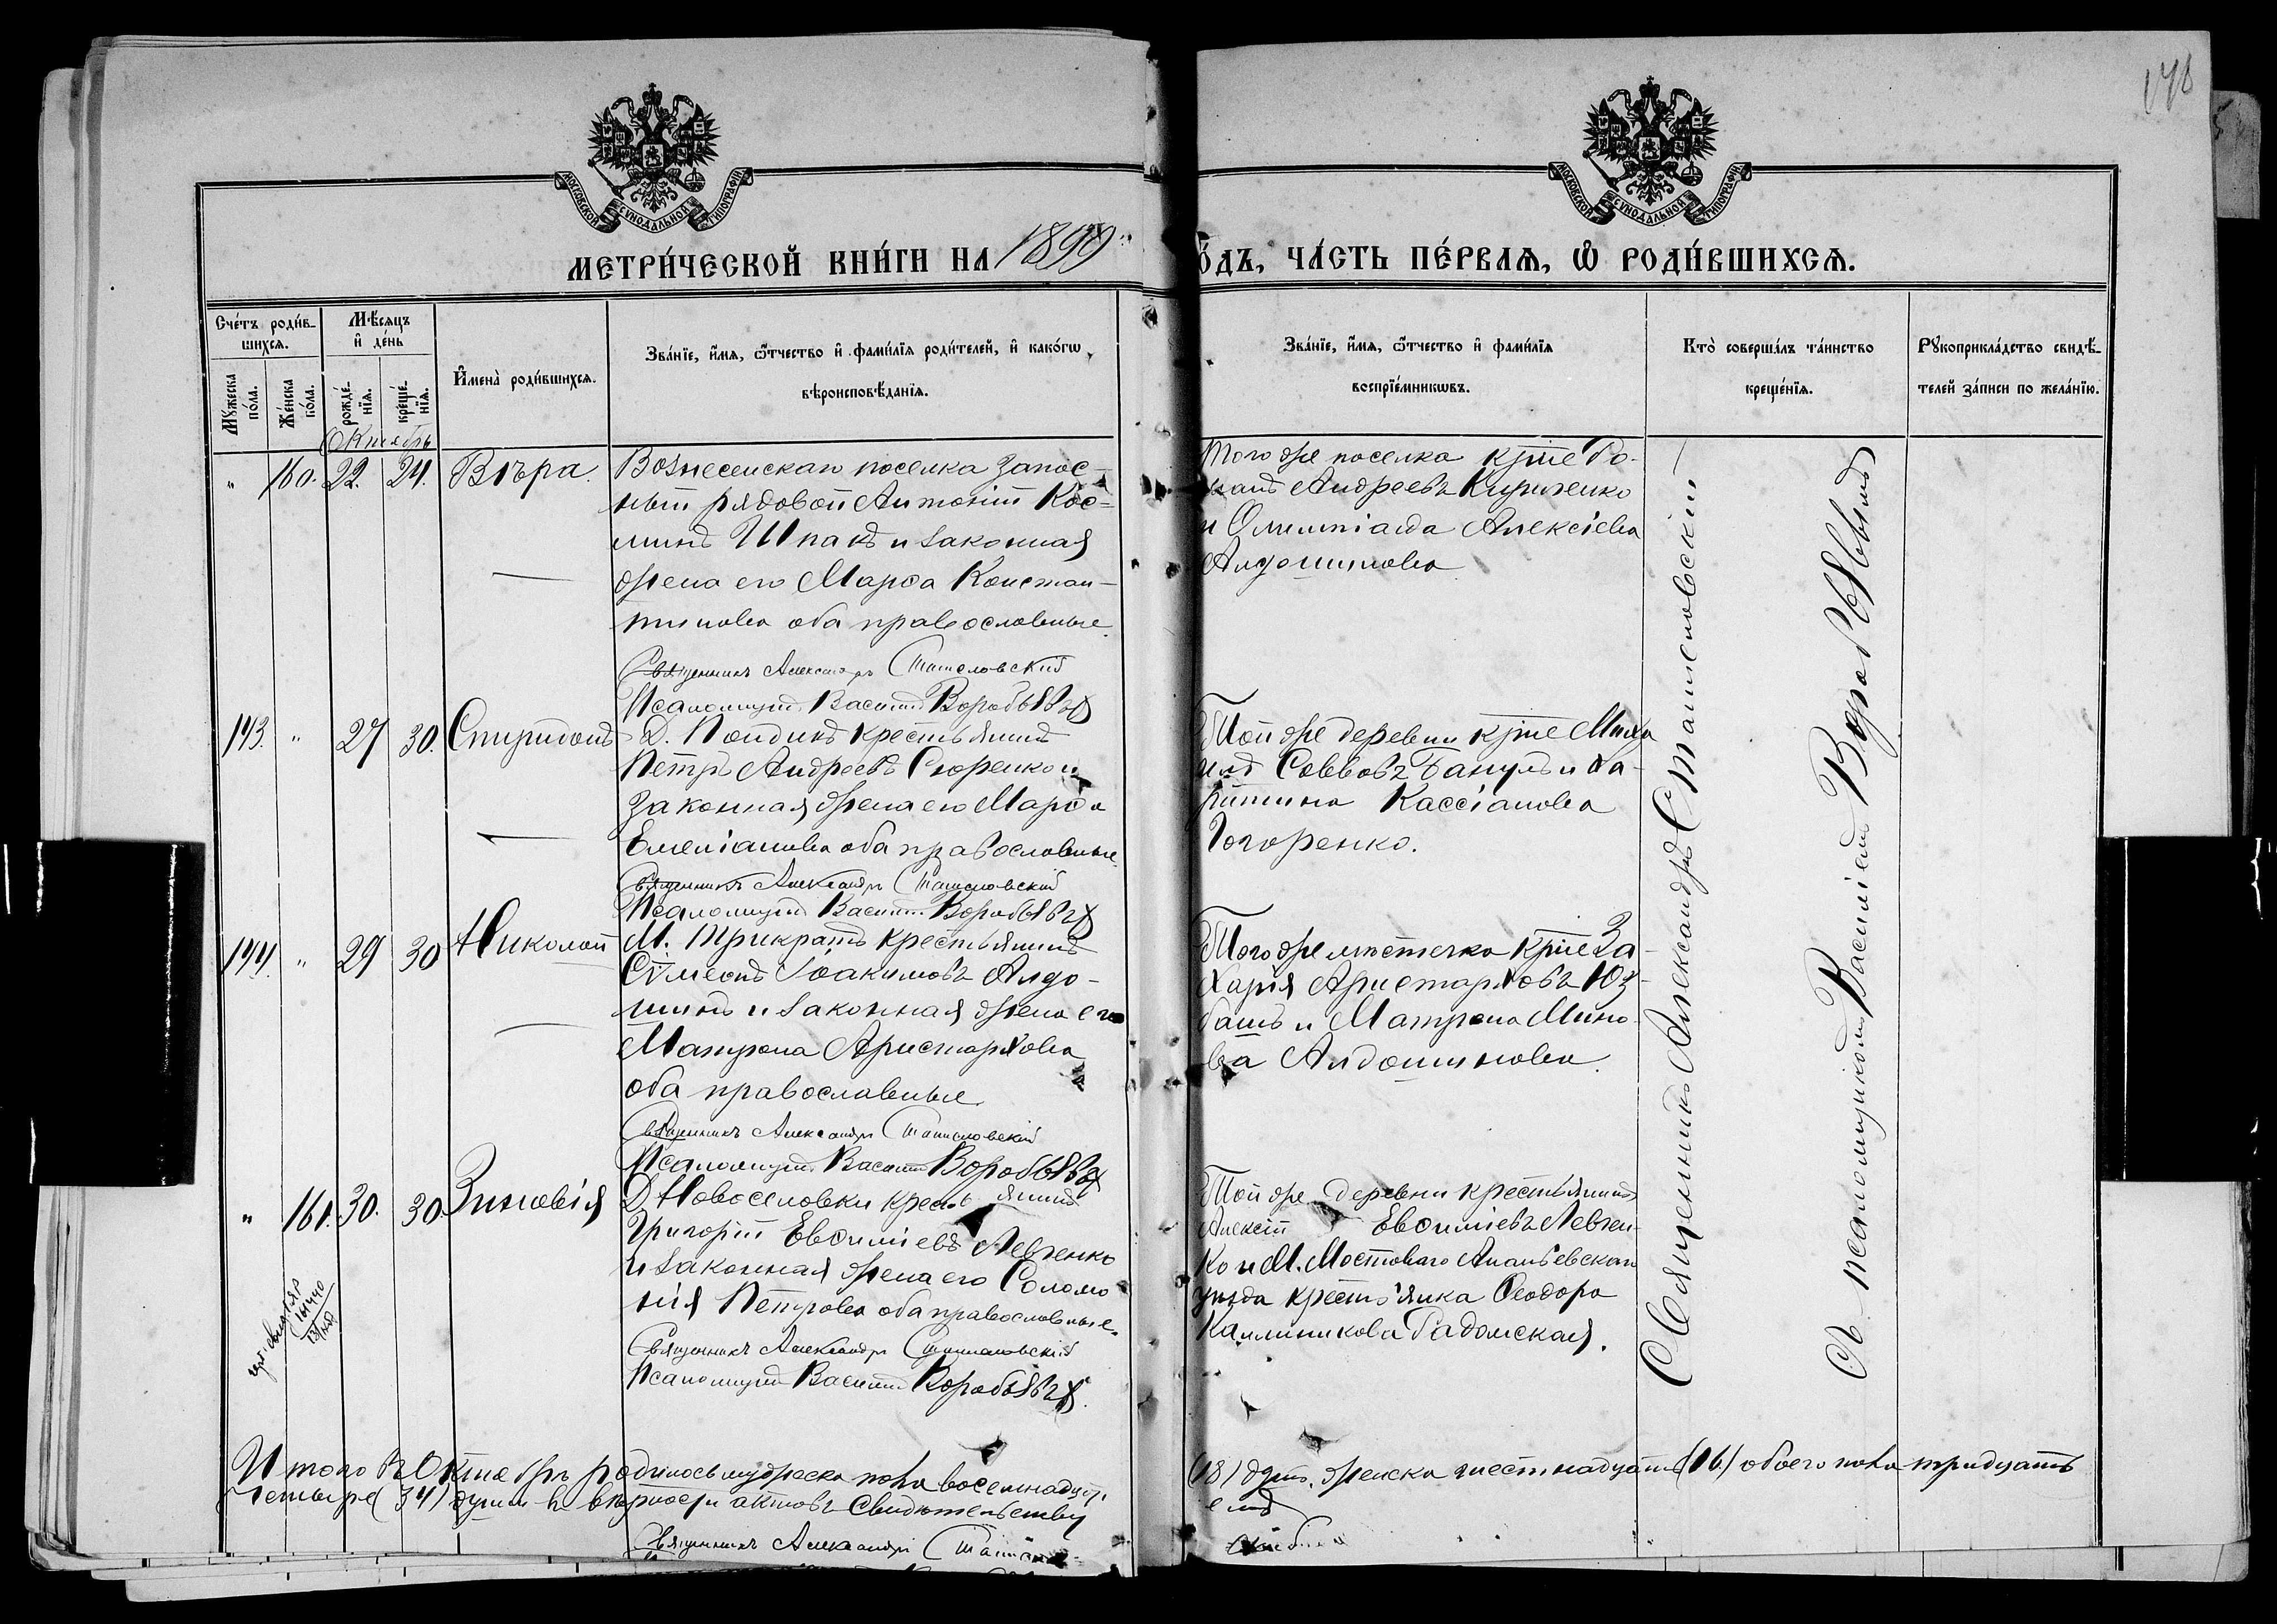 МОСКОВСКОЙ СѴНОДАЛЬНОЙ ТИПОГРАФІИ
МОСКОВСКОЙ СѴНОДАЛЬНОЙ ТИПОГРАФІИ
МЕТРИ́ЧЕСКОЙ КНИ́ГИ НА 1899
О́ДЪ, ЧА́СТЬ ПЕ́РВАѦ, Ѽ РОДИ́ВШИХСѦ.
Сче́тъ роди́в-
шихсѧ.
Мꙋ́жеска
по́ла.
Же́нска
по́ла.
Мѣ́сяцъ
и҆ де́нь
рожде́-
нїѧ.
креще́-
нїѧ.
Октябрь
И҆мена̀ роди́вшихсѧ.
Зва́нїе, и҆́мѧ, ѻ҆́тчество и҆ фами́лїѧ роди́телей, и҆ како́гѡ
вѣроисповѣ́данїѧ.
Зва́нїе, и҆́мѧ, ѻ҆́тчество и҆ фами́лїѧ
воспрїе́мникѡвъ.
Кто̀ соверша́лъ та́инство
креще́нїѧ.
Рꙋкоприкла́дство свидѣ́-
телей за́писи по жела́нїю.
" 160. 22. 24. Вѣра.
Вознесенскаго поселка запас-
ный рядовой Антоній Кос-
минъ Шпакъ и законная
жена его Марѳа Констан-
тинова оба православные.
Священникъ Александръ Станиславскій
Псаломщикъ Василій Воробьевъ
Того же поселка кр-не Ро-
манъ Андреевъ Кириченко
и Олимпіада Алексіева
Алдошинова
143. " 27 30. Спиридонъ
Д. Пондикъ крестьянинъ
Петръ Андреевъ Сюренко и
законная жена его Марѳа
Емеліанова оба православные.
Священникъ Александръ Станиславскій
Псаломщикъ Василій Воробьевъ
Той же деревни кр-не Миха
илъ Саввовъ и Ха-
ритина Кассіанова
144. " 29 30 Николай
М. Трикратъ крестьянинъ
Сѵмеонъ Іоакимовъ Алдо-
шинъ и законная жена его
Матрона Аристархова
оба православные
Священникъ Александръ Станиславскій
Псаломщикъ Василій Воробьевъ
Того же мѣстечка кр-не За-
харія Аристарховъ Юз-
башъ и Матрона Мино-
ва Алдошинова.
" 161. 30. 30. Зиновія
Д. Новоселовки крестьянинъ
Григорій Евѳиміевъ Левченко
и законная жена его Соломо
нія Петрова оба православные.
Священникъ Александръ Станиславскій
Псаломщикъ Василій Воробьевъ
Той же деревни крестьянинъ
Алексій Евѳиміевъ Левчен-
ко и М. Мостоваго Ананьевскаго
уѣзда крестьянка Ѳеодора
Каллиникова Радомская.
Священникъ Александръ Станиславскій
съ псаломщикомъ Василіемъ Воробьевымъ
Итого въ Октябрѣ родилось мужеска пола восемнадцать
(18) душъ, женска шестнадцать (16) обоего пола тридцать
четыре (34) души въ вѣрности актовъ свидѣтельству
емъ
Священникъ Александръ